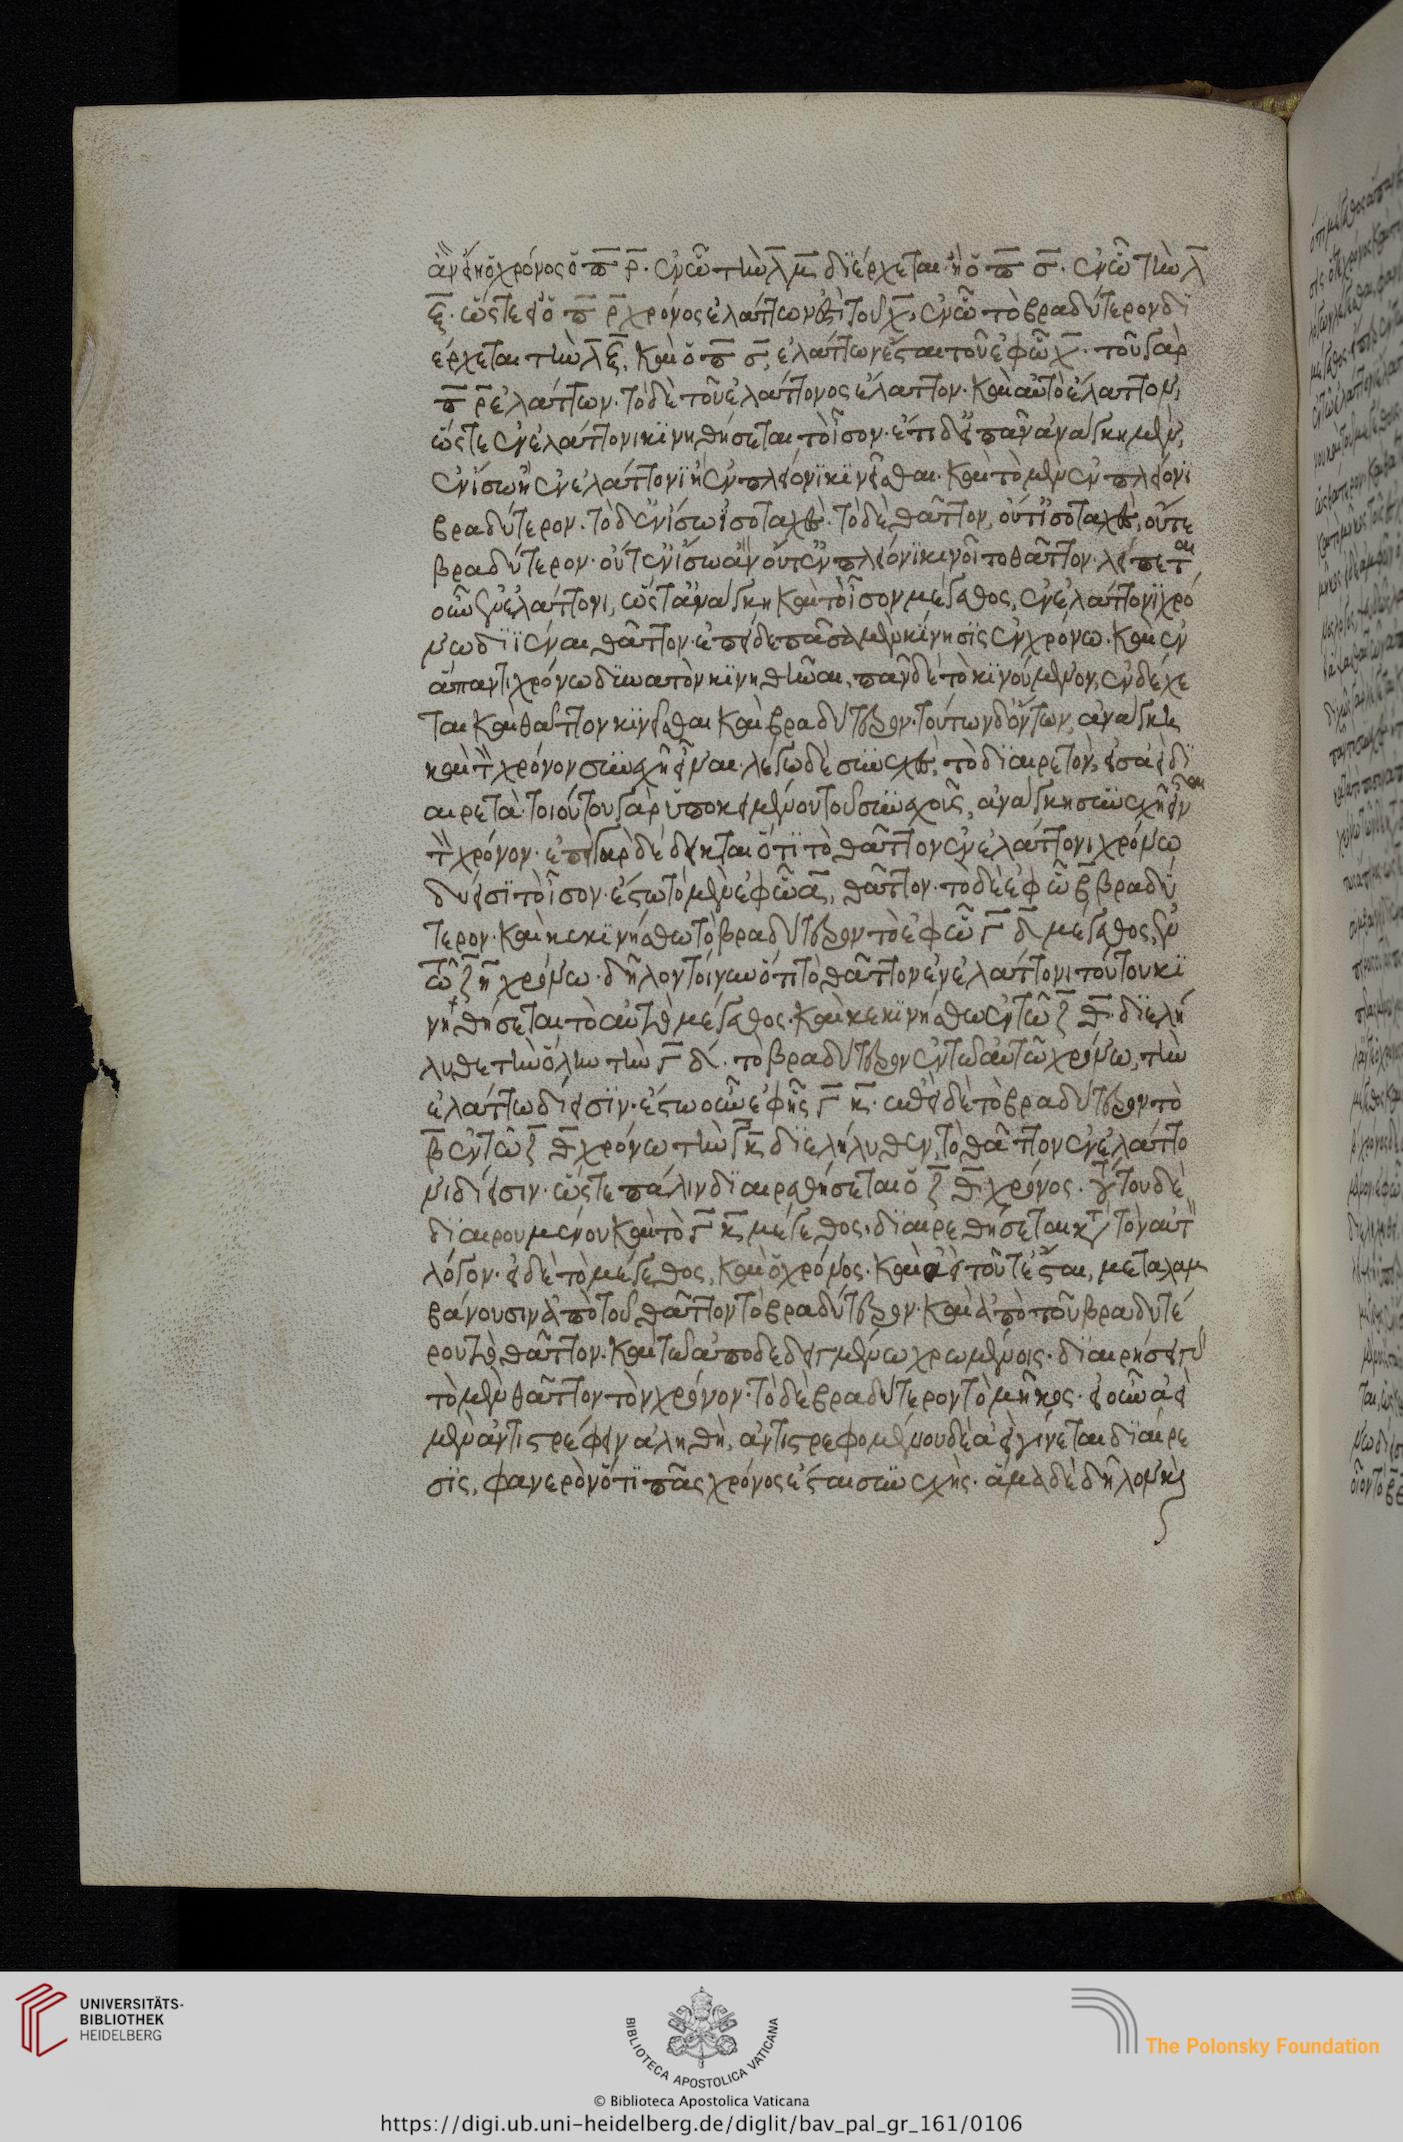 ἂν εἴη ὁ χρόνος ὁ π̅ ρ̅. ἐν ᾧ τὴν λ̅ μ̅ διέρχεται· ἢ ὁ π̅ σ̅. ἐν ᾧ τὴν λ̅
ξ̅. ὥστε εἰ ὁ π̅ ρ̅ χρόνος ἐλάττων ἐστὶ τοῦ χ̅, ἐν ᾧ τὸ βραδύτερον δι
έρχεται τὴν λ̅ ξ̅, καὶ ὁ π̅ σ̅, ἐλάττων ἔσται τοῦ ἐφ ᾧ χ̅. τοῦ γὰρ
π̅ ρ̅ ἐλάττων. τὸ δὲ τοῦ ἐλάττονος ἔλαττον. καὶ αὐτὸ ἔλαττον,
ὥστε ἐν ἐλάττονι κινηθήσεται τὸ ἴσον. ἔτι δ' εἰ πᾶν ἀνάγκη μὲν,
ἐν ἴσῳ ἢ ἐν ἐλάττονι ἢ ἐν πλείονι κινεῖσθαι. καὶ τὸ μὲν ἐν πλείονι
βραδύτερον. τὸ δ' ἐν ἴσῳ ἰσοταχὲς. τὸ δὲ θᾶττον, οὔτ' ἰσοταχὲς, οὔτε
βραδύτερον. οὔτ' ἐν ἴσῳ ἂν οὔτ' ἐν πλείονι κινοῖτο θᾶττον. λείπεται
οὖν ἐν ἐλάττονι, ὥστ' ἀνάγκη καὶ τὸ ἴσον μέγεθος, ἐν ἐλάττονι χρό
νῳ διϊέναι θᾶττον. ἐπεὶ δὲ πᾶσα μὲν κίνησις ἐν χρόνῳ. καὶ ἐν
ἅπαντι χρόνῳ δυνατὸν κινηθῆναι, πᾶν δὲ τὸ κινούμενον, ἐνδέχε
ται καὶ θᾶττον κινεῖσθαι καὶ βραδύτερον. τούτων δ' ὄντων, ἀνάγκη
καὶ τὸν χρόνον συνεχῆ εἶναι. λέγω δὲ συνεχὲς, τὸ διαιρετὸν, εἰς ἀεὶ δι
αιρετά. τοιούτου γὰρ ὑποκειμένου τοῦ συνεχοῦς, ἀνάγκη συνεχῆ εἶναι
τὸν χρόνον. ἐπεὶ γὰρ δέδεικται ὅτι τὸ θᾶττον ἐν ἐλάττονι χρόνῳ
δίεισι τὸ ἴσον. ἔστω τὸ μὲν ἐφ ᾧ α̅, θᾶττον. τὸ δὲ ἐφ ᾧ β̅ βραδύ
τερον. καὶ κεκινήσθω τὸ βραδύτερον τὸ ἐφ ᾧ γ̅ δ̅ μέγεθος, ἐν
τῷ ζ̅ η̅ χρόνῳ. δῆλον τοίνυν ὅτι τὸ θᾶττον ἐν ἐλάττονι τούτου κι
νηθήσεται τὸ αὐτὸ μέγεθος. καὶ κεκινήσθω ἐν τῷ ζ̅ θ̅. διελή
λυθε τὴν ὅλην τὴν γ̅ δ̅. τὸ βραδύτερον ἐν τῷ αὐτῷ χρόνῳ, τὴν
ἐλάττω δίεισιν. ἔστω οὖν ἐφ ἧς γ̅ κ̅. ἐπεὶ δὲ τὸ βραδύτερον τὸ
β̅ ἐν τῷ ζ̅ θ̅ χρόνῳ τὴν γ̅κ̅ διελήλυθεν, τὸ θᾶττον ἐν ἐλάττο
νι δίεισιν. ὥστε πάλιν διαιρεθήσεται ὁ ζ̅ θ̅ χρόνος. τούτου δὲ
διαιρουμένου καὶ τὸ γ̅ κ̅ μέγεθος, διαιρεθήσεται κατὰ τὸν αὐτὸν
λόγον. εἰ δὲ τὸ μέγεθος, καὶ ὁ χρόνος. καὶ ἀεὶ τοῦτ' ἔσται, μεταλαμ
βάνουσιν ἀπὸ τοῦ θάττον τὸ βραδύτερον. καὶ ἀπὸ τοῦ βραδυτέ
ρου τὸ θᾶττον. καὶ τῷ ἀποδεδειγμένῳ χρωμένοις. διαιρήσει γὰρ
τὸ μὲν θᾶττον τὸν χρόνον. τὸ δὲ βραδύτερον τὸ μῆκος. εἰ οὖν ἀεὶ
μὲν ἀντιστρέφειν ἀληθὴ, ἀντιστρεφομένου δὲ ἀεὶ γίνεται διαίρε
σις, φανερὸν ὅτι πᾶς χρόνος ἔσται συνεχής. ἅμα δὲ δῆλον καὶ
UNIVERSITÄTS-
BIBLIOTHEK
HEIDELBERG
BIBLIOTECA APOSTOLICA VATICANA
The Polonsky Foundation
© Biblioteca Apostolica Vaticana
https://digi.ub.uni-heidelberg.de/diglit/bav_pal_gr_161/0106